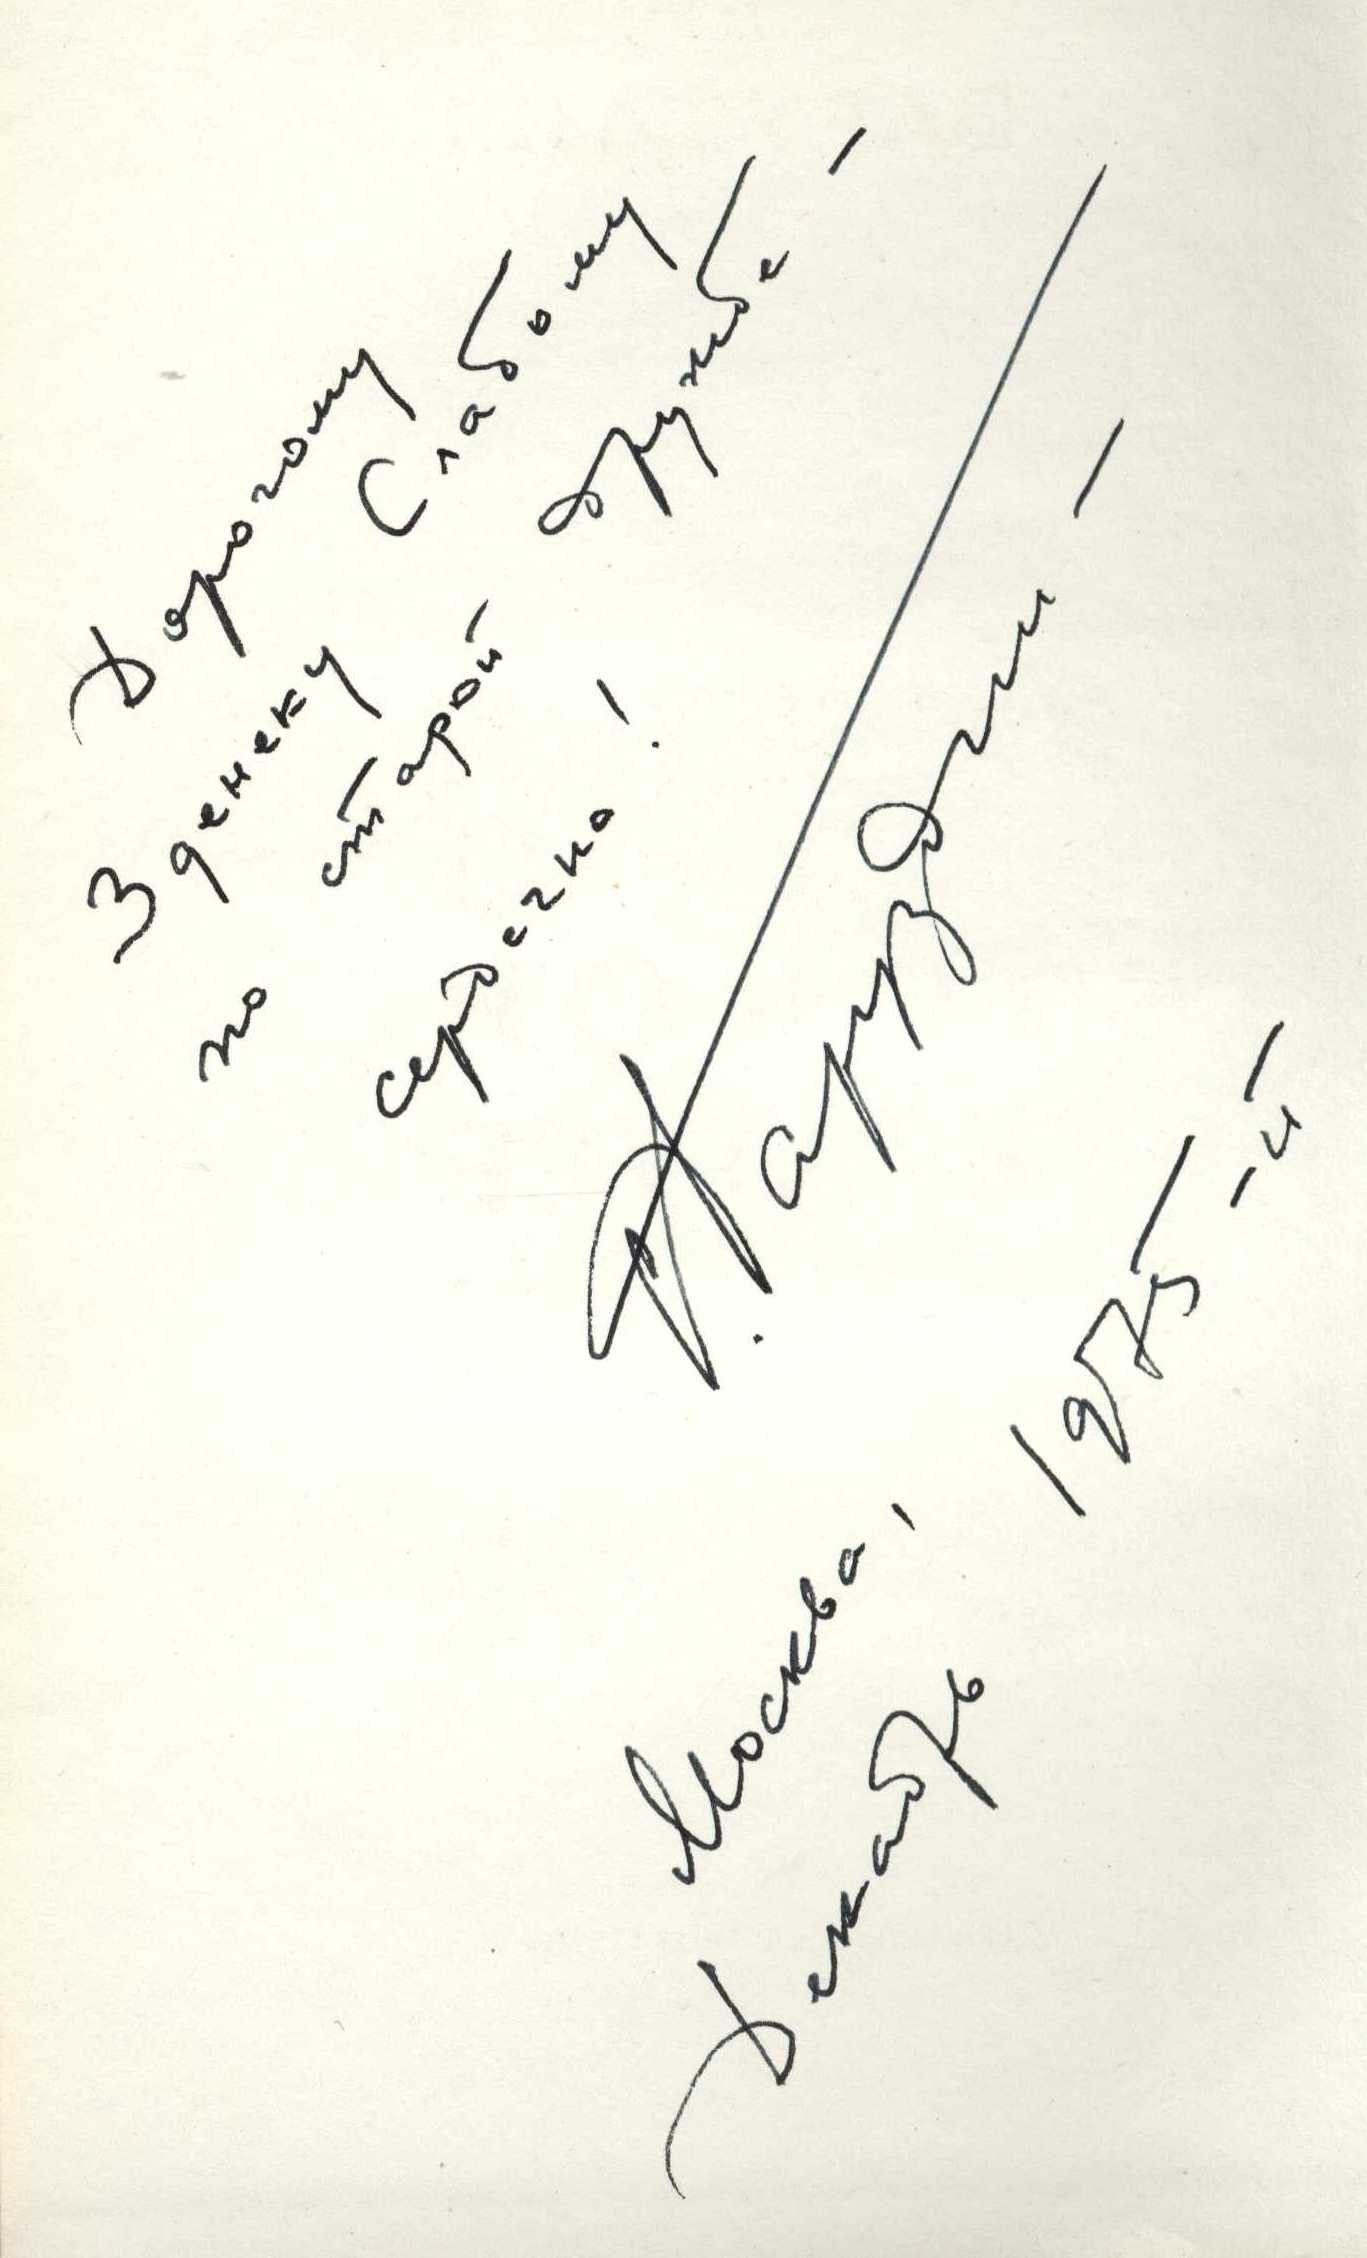 Дорогому
Зденеку Слабому
по старой дружбе —
сердечно!
Москва,
Декабрь 1975-й